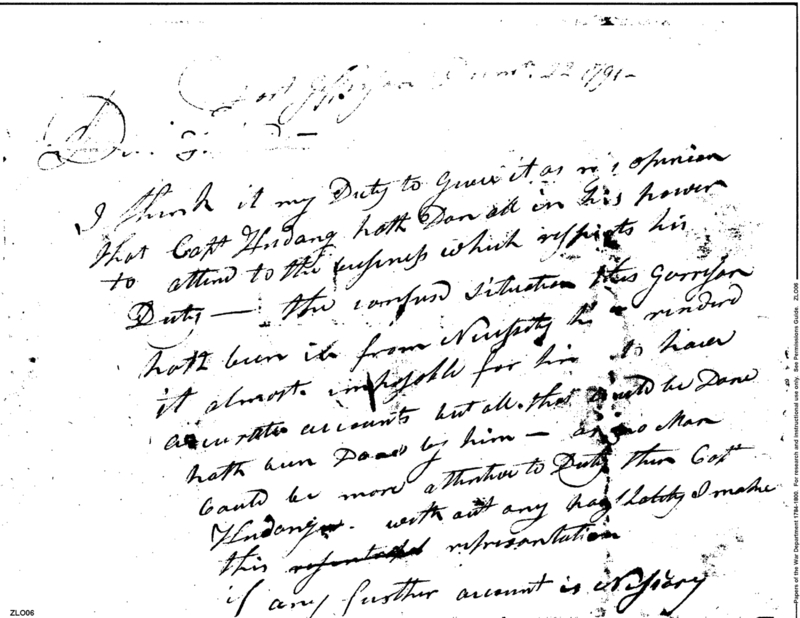 Fort Jefferson Decemr. 22 1791 -
Dear
I think it my Duty to givee it as my opinion
that Capt Hndang hath Don all in his power
to attend to the buseness which respects his
Duty — the confused situation this Garrison
hath been in from Nessesity has rendird
it almost imposable for him to haave
accurate accounts but all that Could be Done
hath been Done by him — as no Man
Could be more attentive to Duty then Capt
Hndang. with out any I make
this representation
if any further account is Nessary
ZLO06
Papers of the War Department 1784-1800. For research and instructional use only. See Permissions Guide. ZLO06